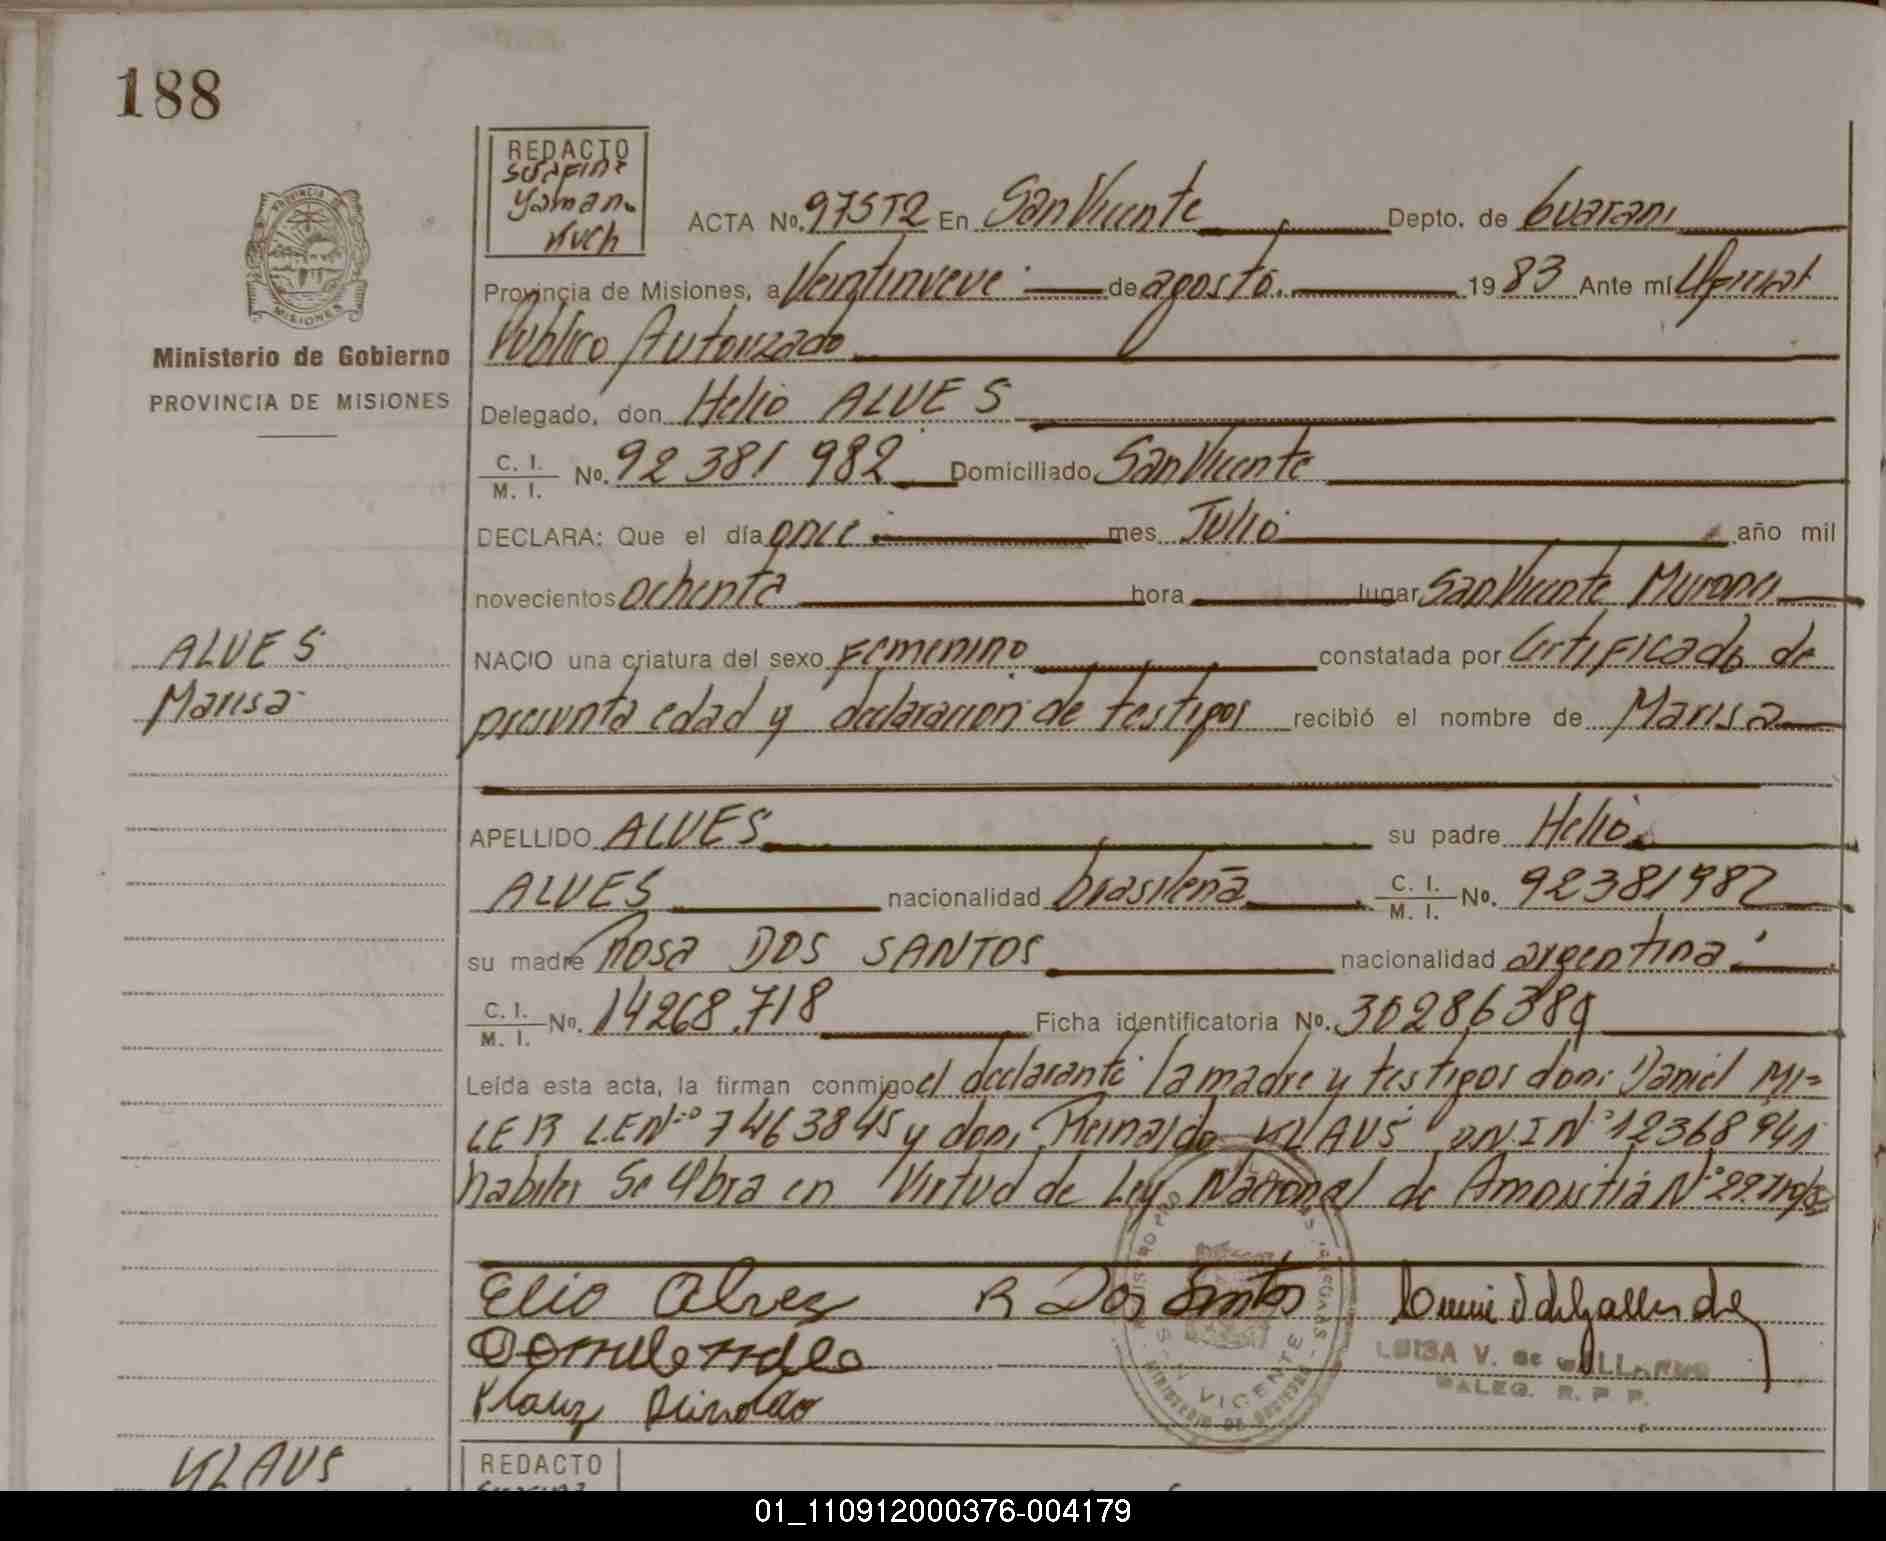 188
REDACTO
Serafina
Yaman
Kuch
PROVINCIA DE
MISIONES
Ministerio de Gobierno
PROVINCIA DE MISIONES
ACTA No. 975T2 En San Vicente Depto. de Guarani
Provincia de Misiones, a Veintinueve de agosto. 1983 Ante mí Oficial
Publico Autorizado
Delegado, don Helio ALVES
C. I. / M. I. No. 92 381 982 Domiciliado San Vicente
DECLARA: Que el día once mes Julio año mil
novecientos ochenta hora lugar San Vicente Misiones
ALVES
Marisa
NACIO una criatura del sexo Femenino constatada por Certificado de
presunta edad y declaracion de testigos recibió el nombre de Marisa
APELLIDO ALVES su padre Helio
ALVES nacionalidad brasileña C. I. / M. I. No. 92381982
su madre Rosa DOS SANTOS nacionalidad argentina
C. I. / M. I. No. 14268.718 Ficha identificatoria No. 30286389
Leída esta acta, la firman conmigo el declarante la madre y testigos don: Daniel MI=
LER L.E Nº 7463845 y don, Reinaldo KLAUS DNI Nº 12368941
habiles Se Labra en Virtud de Ley Nacional de Amnistia Nº
Elio Alves R Dos Santos
Klauz Reinoldo
SAN VICENTE
LUISA V. de
DALEG. R. P. P.
KLAUS
REDACTO
01_110912000376-004179